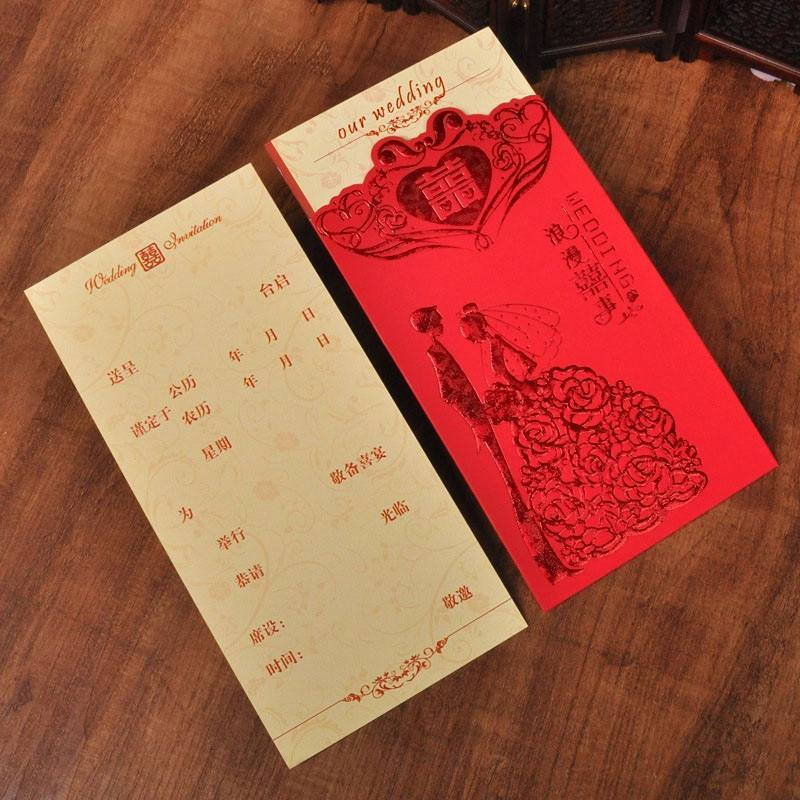 Wedding 囍 Invitation
台启
送呈
公历 年 月 日
谨定于 农历 年 月 日
星期
敬备喜宴
为
举行 光临
恭请
敬邀
席设：
时间：
our wedding
囍
WEDDING
浪漫囍事